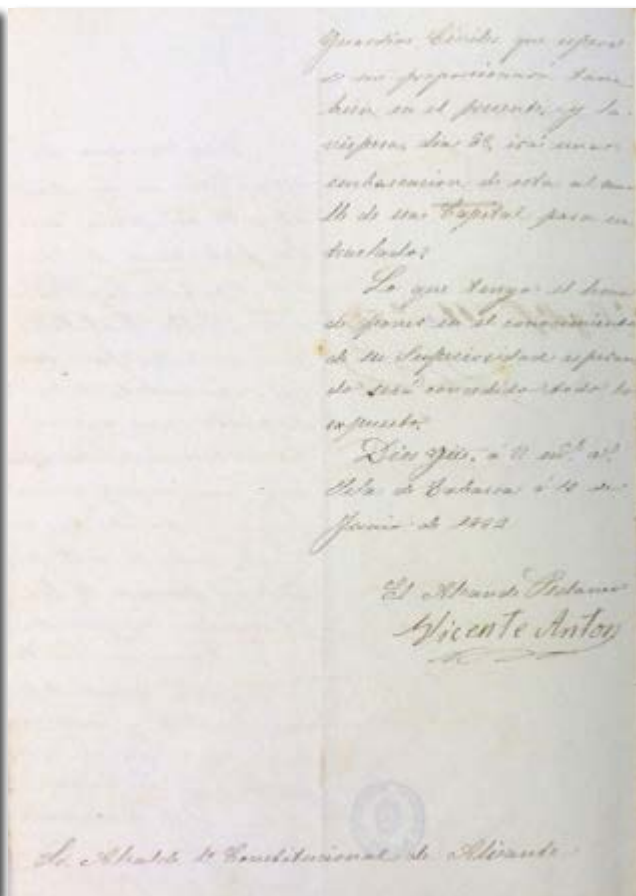 Guardias Civiles que espera-
se nos proporcionará tam-
bien en el presente, y la
víspera, dia 28, irá una
embarcacion de esta al mue-
lle de esa Capital para su
traslado.
Lo que tengo el honor
de poner en el conocimiento
de su Superioridad esperan-
do será concedido todo lo
expuesto.
Dios gue. á V. ms. as.
Isla de Tabarca á 12 de
Junio de
El Alcalde Pedaneo
Vicente Anton
Sr. Alcalde 1º Constitucional de Alicante